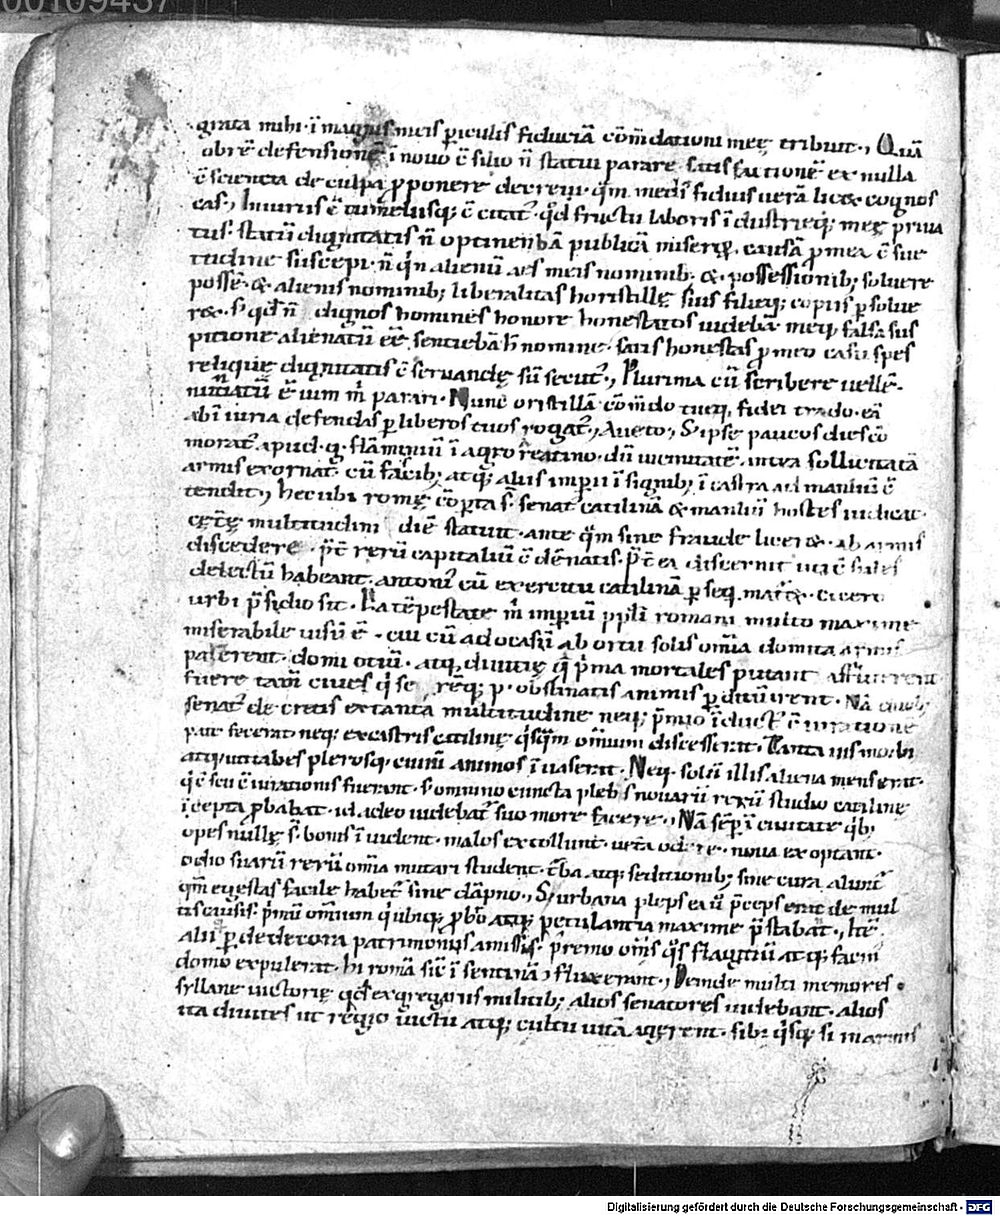 00109437
grata mihi · ī magnis meis ꝑiculis fiduciā cōm̄dationi meę tribuit ·, Quā
obrē defensionē ī novo c̄silio n̄ statui parare · satisfactionē ex nulla
c̄scientia de culpa ꝓponere decreui · qm̄ medi fidius uerā licet cognos
cas ·, Iniuriis c̄tumeliisq; c̄citatꝰ · qd̄ fructu laboris īdustrieq; meę priua
tus · statū dignitatis n̄ optinebā publicā miserorꝫ causā ꝓ mea c̄sue
tudine suscepi · n̄ qn̄ alienū aes meis nominib; & possessionib; soluere
possē · & alienis nominib; liberalitas horistillę suis filieq; copiis ꝑsolue
r& · s; qd̄ n̄ dignos homines honore honestatos uidebā meq; falsa sus
pitione alienatū eē sentiebā · h̄ nomine · satis honestas ꝓ meo casu spes
reliquię dignitatis c̄seruandę sū secutꝰ ·, Plurima cū scribere uellē ·
nūtiatū ē uim m̄ parari · Nunc oristillā cōm̄do tueq; fidei trado · eā
ab īiuria defendas ꝑ liberos tuos rogatꝰ ·, Aueto ·, S; ipse paucos dies cō
moratꝰ apud · q; flāminiū ī agro reatino · dū uicinitatē antea sollicitatā
armis exornat · cū fascib; atq; aliis imperii īsignib; ī castra ad manliū c̄
tendit ·, Hec ubi romę cōperta s̄ · senatꝰ catilinā & manliū hostes iudicat ·
cętę multitudini diē statuit · ante quā sine fraude licer& · ab armis
discedere · p̄t rerū capitaliū c̄dēnatis · p̄t ea discernit uti c̄sules
delectū habeant · antoniꝰ cū exercitu catilinā ꝑseq; matur& · cicero
urbi p̄sidio sit · Ea tēpestate m̄ imperiū ppl̄i romani multo maxime
miserabile uisū ē · cui cū ad ocasū ab ortu solis om̄ia domita armis
parerent · domi otiū · atq; diuitię q̄ p̄ma mortales putant affluerent
fuere tam̄ ciues q̇ se remq; p · obstinatis animis ꝑditum irent · Nā duob;
senatꝰ decretis ex tanta multitudine neq; p̄mio īductꝰ c̄iuratione
pate fecerat neq; ex castris catiline quisquam om̄ium discesserat · Tanta uis morbi
atq; uti tabes plerosq; ciuiū animos īuaserat · Neq; solū illis aliena mens erat ·
q̇ c̄scii c̄iurationis fuerant · s; omnino cuncta plebs nouarū rerū studio catiline
īcepta ꝓbabat · id adeo uidebatꝰ suo more facere ·, Nā sēp ī ciuitate qib;
opes nullę s̄ bonis īuident · malos extollunt · uetā odere · noua exoptant ·
odio suarū rerū om̄ia mutari student · t̄ba atq; seditionib; sine cura aluntꝰ
qm̄ egestas facile habetꝰ sine dāpno ·, S; urbana pleps ea ū p̄ceps erat de mul
tis causis · p̄mū om̄ium q̇ ubiq; ꝓbro atq; petulantia maxime p̄stabat ·, Itē
alii ꝑ dedecora patrimoniis amissis · premo om̄s q̇s flagitiū atq; facin
domo expulerat · hi romā sic̄ ī sentinā · fluxerant ·, Deinde multi memores ·
syllane uictorię qd̄ ex gregariis militib; alios senatores uidebant · alios
ita diuites ut regio uictu atq; cultu uitā agerent · sibi q̇sq; si in armis
Digitalisierung gefördert durch die Deutsche Forschungsgemeinschaft - DFG